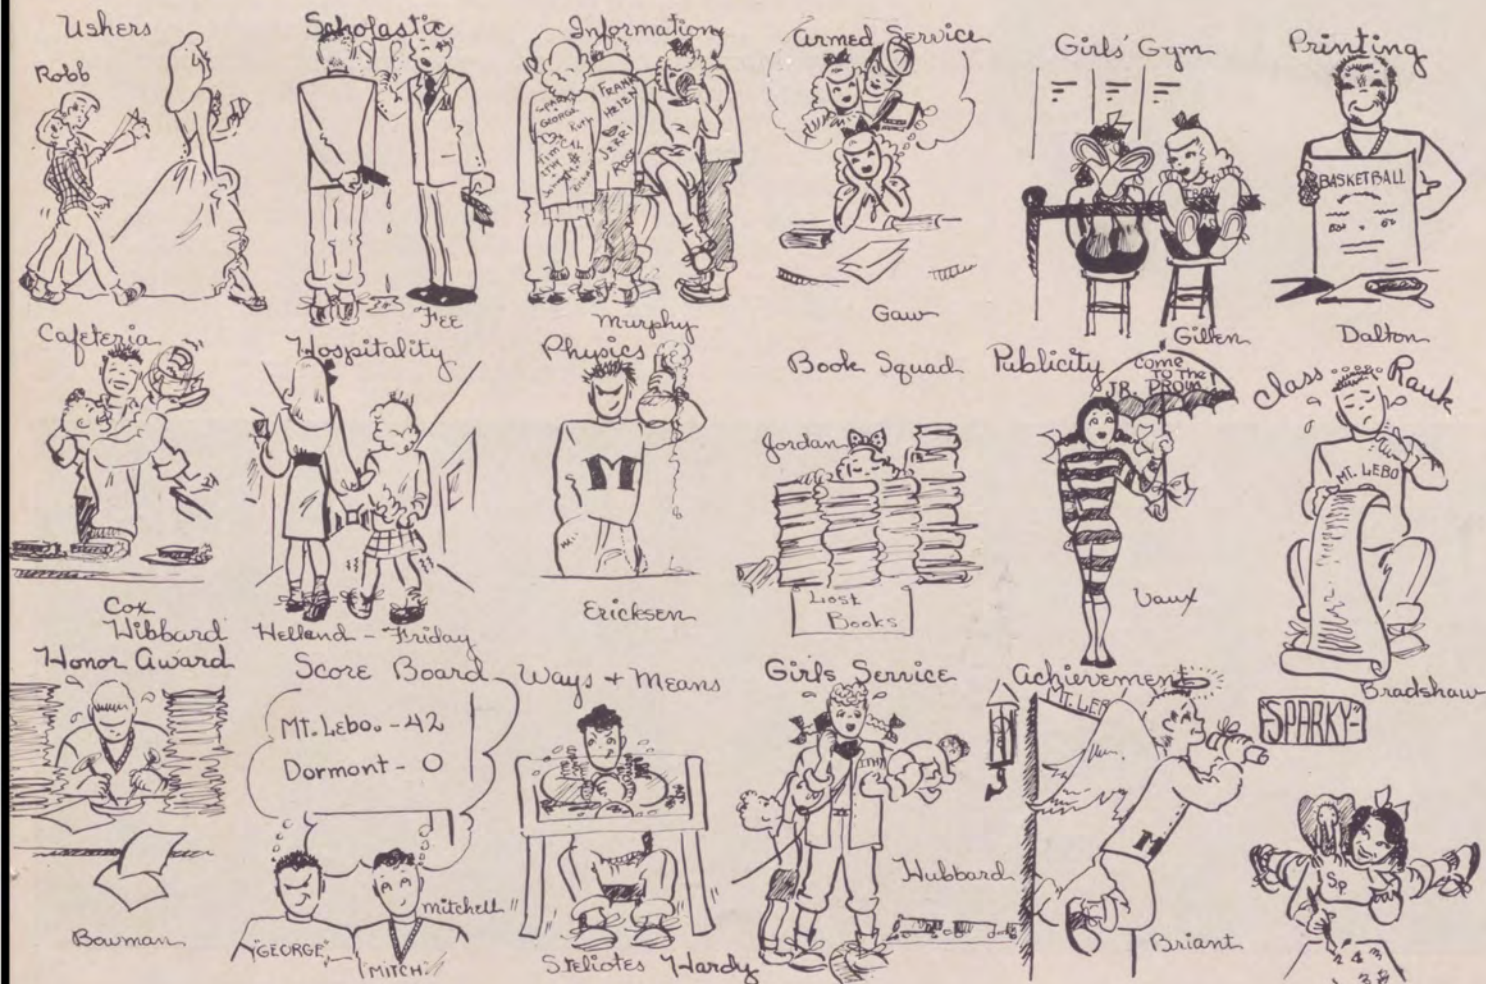 Ushers
Robb
Scholastic
Fee
Information
SPARKY
GEORGE
Ruth
Tim
CAL
FRAN
HELEN
JERRI
ROSE
Murphy
Armed Service
Gaw
Girls' Gym
Gilken
Printing
BASKETBALL
Dalton
Cafeteria
Cox
Hibbard
Hospitality
Helland - Friday
Physics
M
Ericksen
Book Squad
Jordan
Lost
Books
Publicity
COME
TO THE
JR. PROM
Vaux
Class Rank
MT. LEBO
Bradshaw
Honor Award
Bowman
Score Board
Mt. Lebo. - 42
Dormont - 0
"GEORGE"
"MITCH"
Mitchell
Ways + Means
Steliotes Hardy
Girls Service
Hubbard
Achievement
MT. LEBO
M
Briant
"SPARKY"
Sp
2 4 3